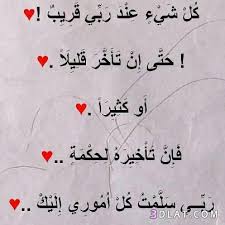 كُلْ شَيْءٍ عِنْدَ رَبِّي قَرِيبٌ !♥
! حَتَّى إِنْ تَأَخَّرَ قَلِيلَاً .♥
أَو كَثِيرَاً .♥
فَإِنَّ تَأْخِيرَهُ لَحِكْمَةٍ ..♥
رَبِّي سَلَّمْتُ كُلْ أُمُورِي إِلَيْكَ ..♥
3DLAT.COM